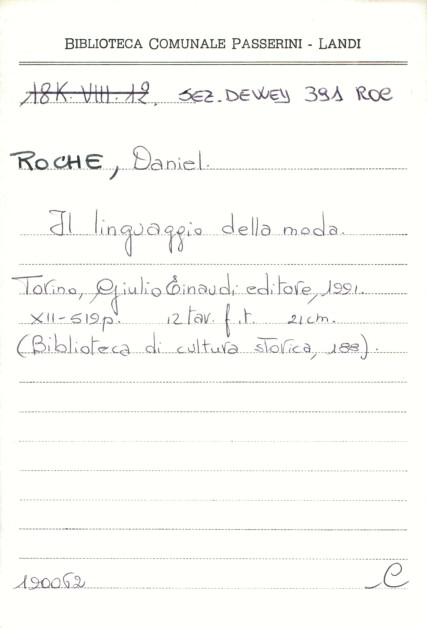 BIBLIOTECA COMUNALE PASSERINI - LANDI
18K. VIII. 12. SEZ. DEWEY 391 ROC
ROCHE, Daniel.
Il linguaggio della moda.
Torino, Giulio Einaudi editore, 1991.
XII-519p. 12 tav. f.t. 21cm.
(Biblioteca di cultura storica, 188).
190062 C